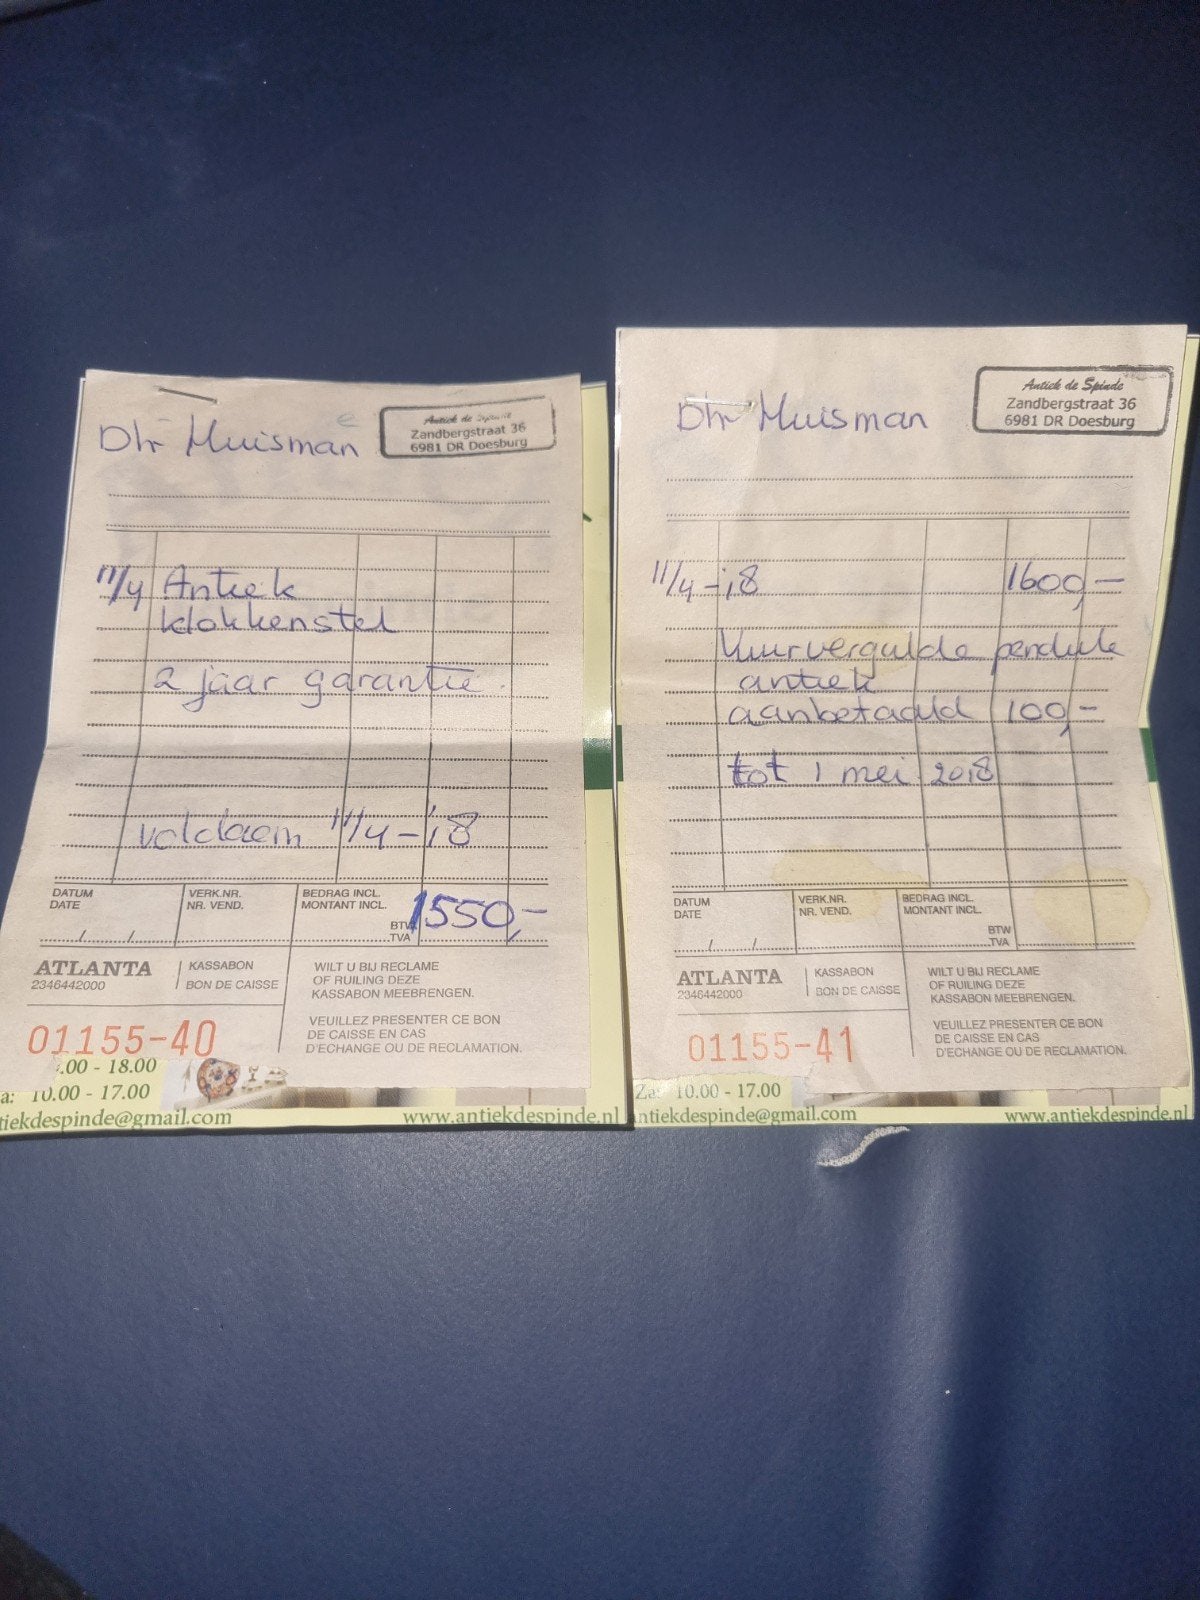 Dhr Huisman
Antiek de Spinde
Zandbergstraat 36
6981 DR Doesburg
11/4 Antiek
klokkenstel
2 jaar garantie.
voldaem 11/4-'18
DATUM
DATE
VERK.NR.
NR. VEND.
BEDRAG INCL.
MONTANT INCL.
BTW
TVA
1550,-
ATLANTA
2346442000
KASSABON
BON DE CAISSE
WILT U BIJ RECLAME
OF RUILING DEZE
KASSABON MEEBRENGEN.
VEUILLEZ PRESENTER CE BON
DE CAISSE EN CAS
D'ECHANGE OU DE RECLAMATION.
01155-40
.00 - 18.00
a: 10.00 - 17.00
tiekdespinde@gmail.com
www.antiekdespinde.nl
Dhr Huisman
Antiek de Spinde
Zandbergstraat 36
6981 DR Doesburg
11/4-'18 1600,-
Vuurvergulde pendule
antiek
aanbetaald 100,-
tot 1 mei 2018
DATUM
DATE
VERK.NR.
NR. VEND.
BEDRAG INCL.
MONTANT INCL.
BTW
TVA
ATLANTA
2346442000
KASSABON
BON DE CAISSE
WILT U BIJ RECLAME
OF RUILING DEZE
KASSABON MEEBRENGEN.
VEUILLEZ PRESENTER CE BON
DE CAISSE EN CAS
D'ECHANGE OU DE RECLAMATION.
01155-41
Za: 10.00 - 17.00
ntiekdespinde@gmail.com
www.antiekdespinde.nl